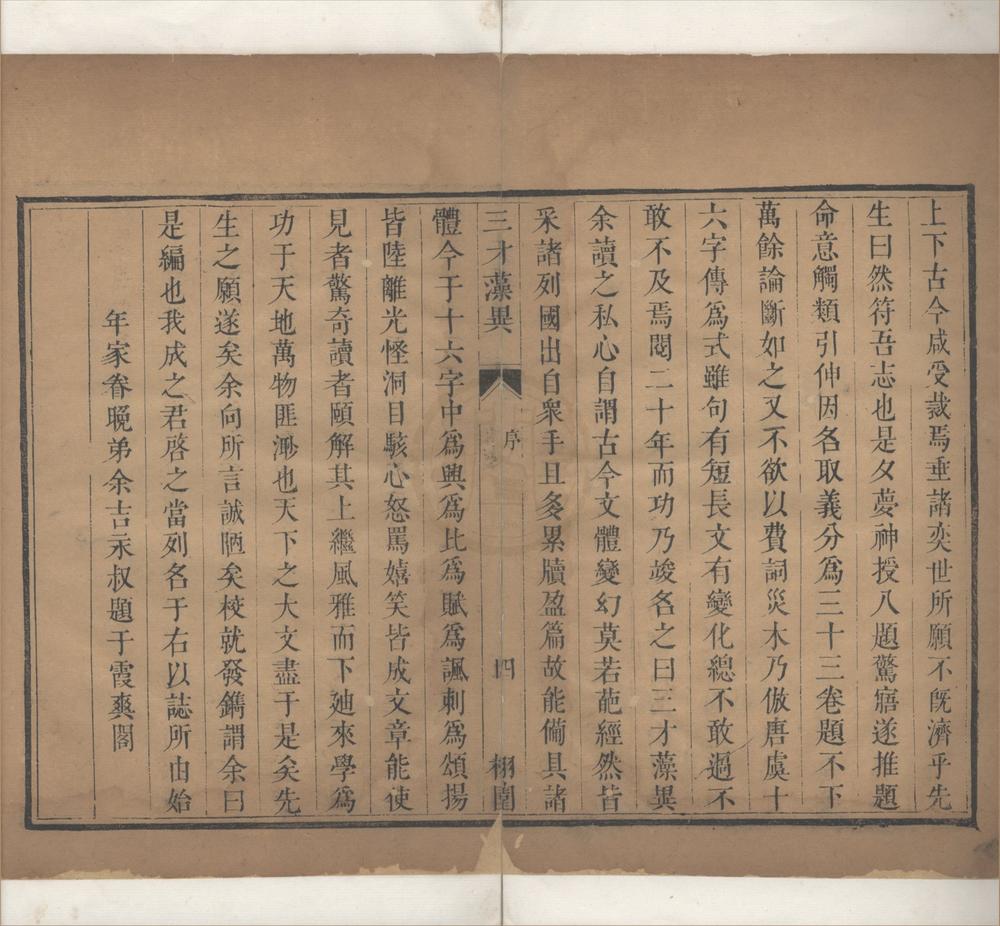 上下古今咸受裁焉垂諸奕世所願不旣濟乎先
生曰然符吾志也是夕夢神授八題驚寤遂推題
命意觸類引伸因名取義分爲三十三卷題不下
萬餘論斷如之又不欲以費詞災木乃倣唐虞十
六字傳爲式雖句有短長文有變化總不敢過不
敢不及焉閱二十年而功乃竣名之曰三才藻異
余讀之私心自謂古今文體變幻莫若葩經然皆
采諸列國出自衆手且夌累牘盈篇故能備具諸
三才藻異 序 四 栩園
體今于十六字中爲興爲比爲賦爲諷刺爲頌揚
皆陸離光怪洞目駭心怒罵嬉笑皆成文章能使
見者驚奇讀者頤解其上繼風雅而下廸來學爲
功于天地萬物匪渺也天下之大文盡于是矣先
生之願遂矣余向所言誠陋矣校就發鐫謂余曰
是編也我成之君啓之當列名于右以誌所由始
年家眷晚弟余吉釆叔題于霞爽閣